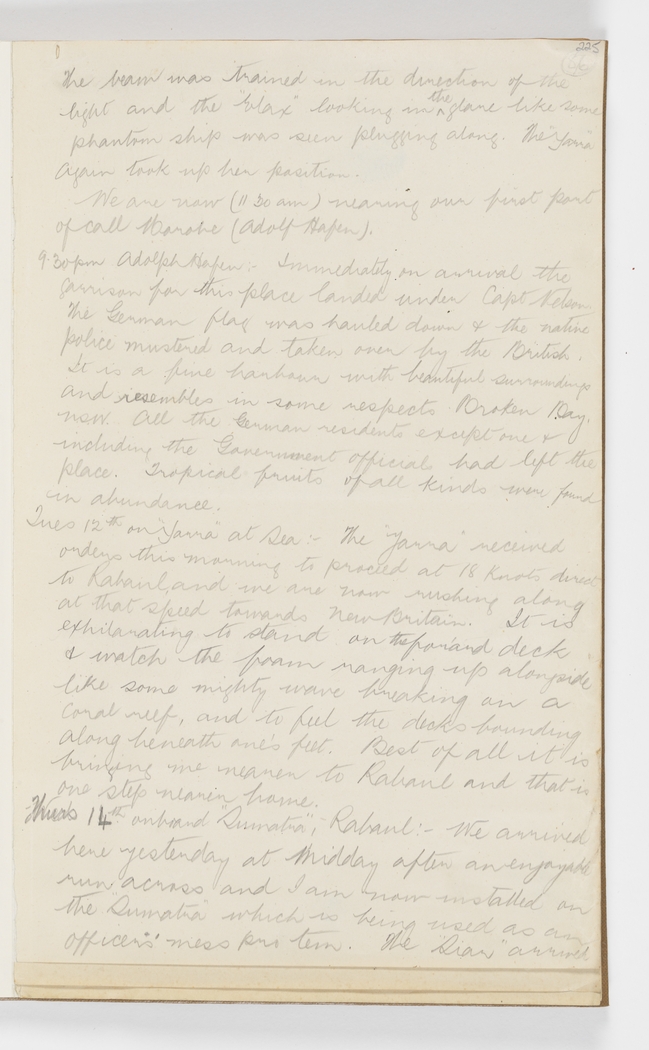 225
66
The beam was trained in the direction of the
light and the "Elax" looking in the glare like some
phantom ship was seen plugging along. The "Yarra"
again took up her position.
We are now (11.30 am) nearing our first port
of call Morobe (Adolf Hafen).
9.30pm Adolph Hafen:- Immediately on arrival the
garrison for this place landed under Capt Nelson
The German flag was hauled down & the native
police mustered and taken over by the British.
It is a fine harbour with beautiful surroundings
and resembles in some respects Broken Bay,
NSW. All the German residents except one &
including the Government official had left the
place. Tropical fruits of all kinds were found
in abundance.
Tues 12th on "Yarra" at Sea:- The "Yarra" received
orders this morning to proceed at 18 Knots direct
to Rabaul, and we are now rushing along
at that speed towards New Britain. It is
exhilarating to stand on the for'ard deck
& watch the foam ranging up alongside
like some mighty wave breaking on a
coral reef, and to feel the decks bounding
along beneath one's feet. Best of all it is
bringing me nearer to Rabaul and that is
one step nearer home.
Thurs 14th onboard "Sumatra", Rabaul:- We arrived
here yesterday at Midday after an enjoyable
run across and I am now installed on
the "Sumatra" which is being used as an
officers' mess pro tem. The "Siar" arrived